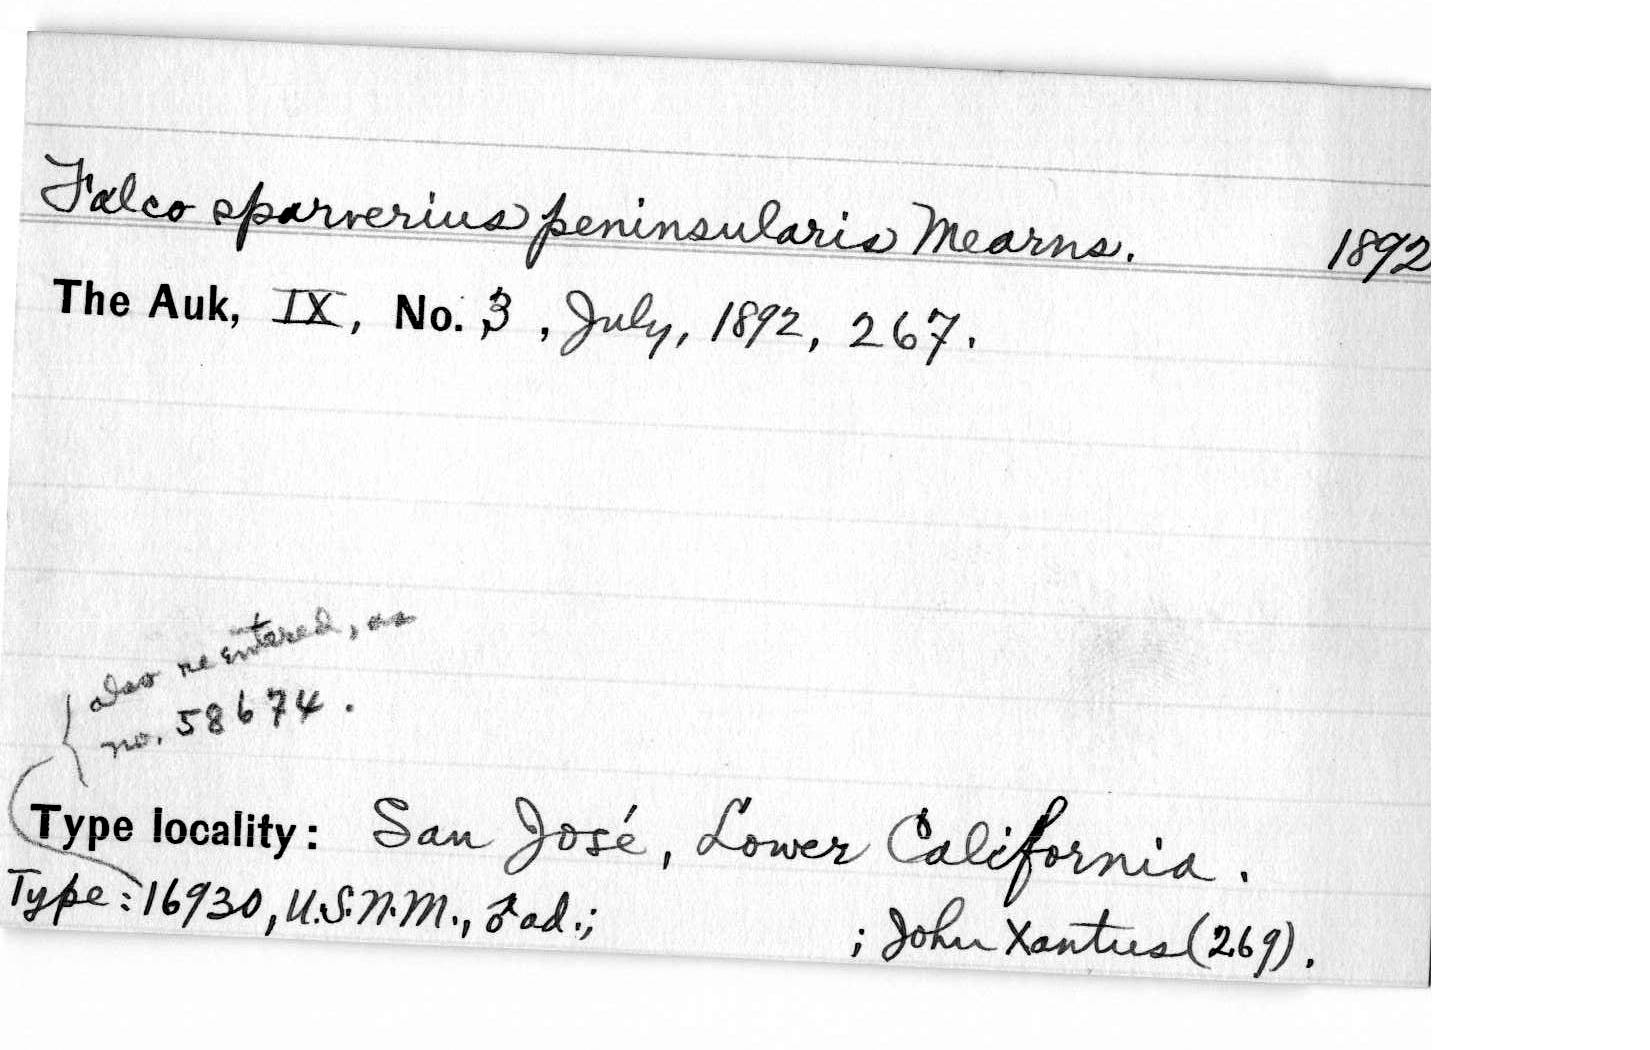 Falco sparverius peninsularis Mearns. 1892
The Auk, IX, No. 3, July, 1892, 267.
also re entered, as
no. 58674.
Type locality: San José, Lower California.
Type: 16930, U.S.N.M., ♂ ad.; ; John Xantus (269).